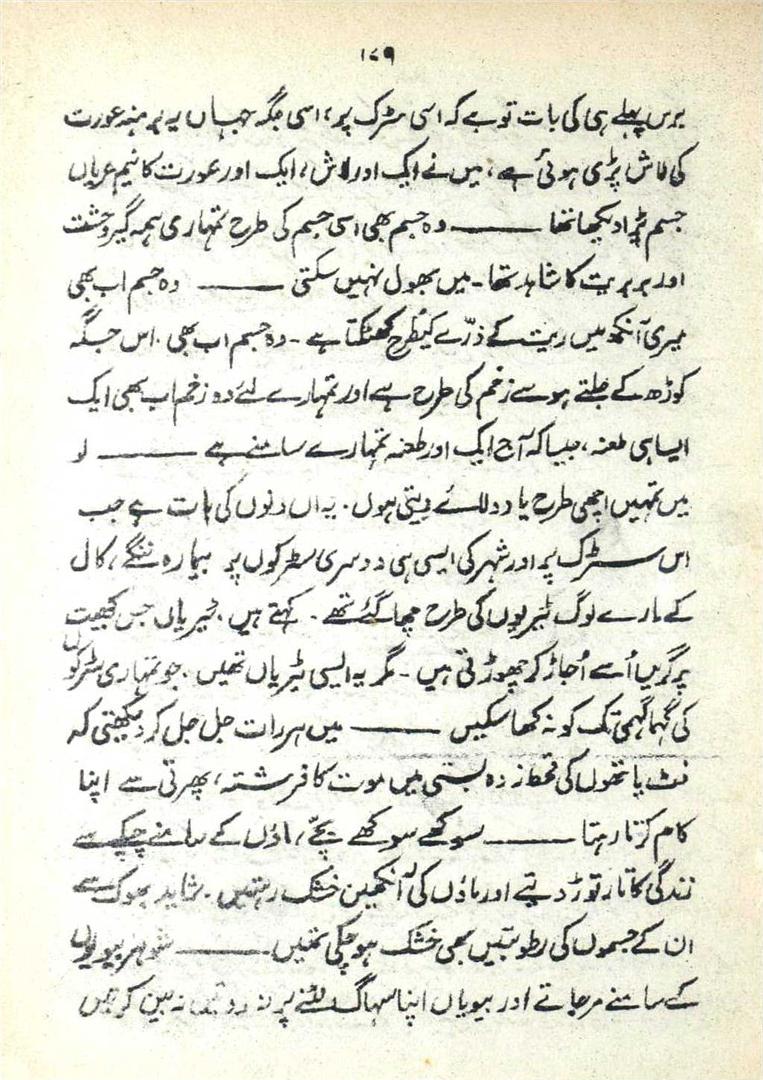 ۱۷۹
برس پہلے ہی کی بات تو ہے کہ اسی سڑک پر، اسی جگہ جہاں یہ برہنہ عورت
کی لاش پڑی ہوئی ہے، میں نے ایک اور لاش، ایک اور عورت کا نیم عریاں
جسم پڑا دیکھا تھا ——— وہ جسم بھی اسی جسم کی طرح تمہاری ہمہ گیر وحشت
اور بربریت کا شاہد تھا۔ میں بھول نہیں سکتی ——— وہ جسم اب بھی
میری آنکھ میں ریت کے ذرّے کیطرح کھٹکتا ہے۔ وہ جسم اب بھی۔ اس جگہ
کوڑھ کے جلتے ہوسے زخم کی طرح ہے اور تمہارے لئے وہ زخم اب بھی ایک
ایسا ہی طعنہ، جیسا کہ آج ایک اور طعنہ تمہارے سامنے ہے ——— لو
میں تمہیں اچھی طرح یاد دلائے دیتی ہوں۔ یہ اں دنوں کی بات ہے جب
اس سڑک پر اور شہر کی ایسی ہی دوسری سڑکوں پر بیمارہ ننگے، کال
کے مارے لوگ ٹیریوں کی طرح چھا گئے تھے۔ کہتے ہیں۔ ٹیریاں جس کھیت
پر گریں اُسے اُجاڑ کر چھوڑتی ہیں۔ مگر یہ ایسی ٹیریاں تھیں۔ جو تمہاری سڑکوں
کی گہما گہمی تک کو نہ کھا سکیں ——— میں ہر رات جل جل کر دیکھتی کہ
فٹ پاتھوں کی قحط زدہ بستی میں موت کا فرشتہ، پھرتی سے اپنا
کام کرتا رہتا ——— سوکھے سوکھے بچّے، ماؤں کے سامنے چپکے سے
زندگی کا تار توڑ دیتے اور ماؤں کی آنکھیں خشک رہتیں۔ شاید بھوک سے
ان کے جسموں کی رطوبتیں بھی خشک ہو چکی تھیں ——— شوہر بیویوں
کے سامنے مر جاتے اور بیویاں اپنا سہاگ لٹنے پر نہ روتیں نہ بین کرتیں